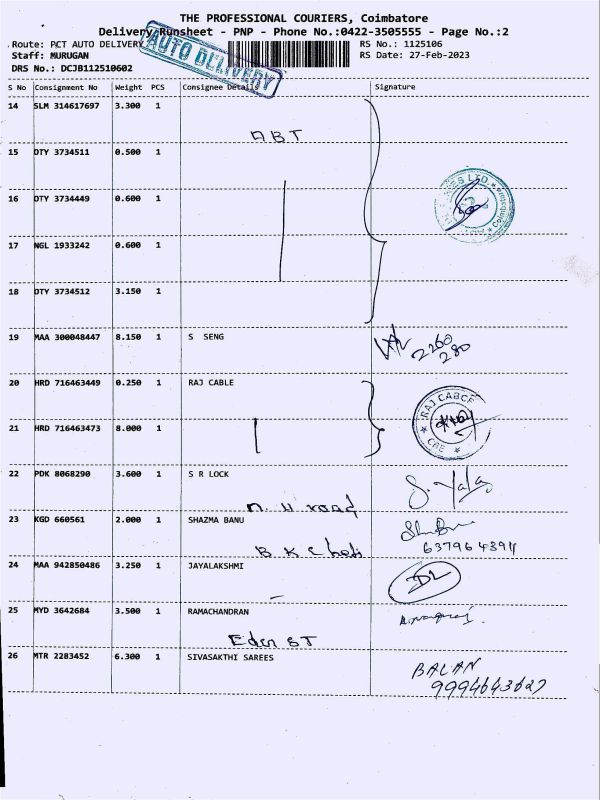 THE PROFESSIONAL COURIERS, Coimbatore
Delivery Runsheet - PNP - Phone No.:0422-3505555 - Page No.:2
Route: PCT AUTO DELIVERY
RS No.: 1125106
Staff: MURUGAN
RS Date: 27-Feb-2023
DRS No.: DCJB112510602
AUTO DELIVERY
S No Consignment No Weight PCS Consignee Details Signature
14 SLM 314617697 3.300 1
ABT
15 DTY 3734511 0.500 1
16 DTY 3734449 0.600 1
17 NGL 1933242 0.600 1
18 DTY 3734512 3.150 1
19 MAA 300048447 8.150 1 S SENG
2260
280
20 HRD 716463449 0.250 1 RAJ CABLE
RAJ CABCF
CBE
21 HRD 716463473 8.000 1
22 PDK 8068290 3.600 1 S R LOCK
N H road
23 KGD 660561 2.000 1 SHAZMA BANU
B K
24 MAA 942850486 3.250 1 JAYALAKSHMI
25 MYD 3642684 3.500 1 RAMACHANDRAN
ST
26 MTR 2283452 6.300 1 SIVASAKTHI SAREES
BALAN